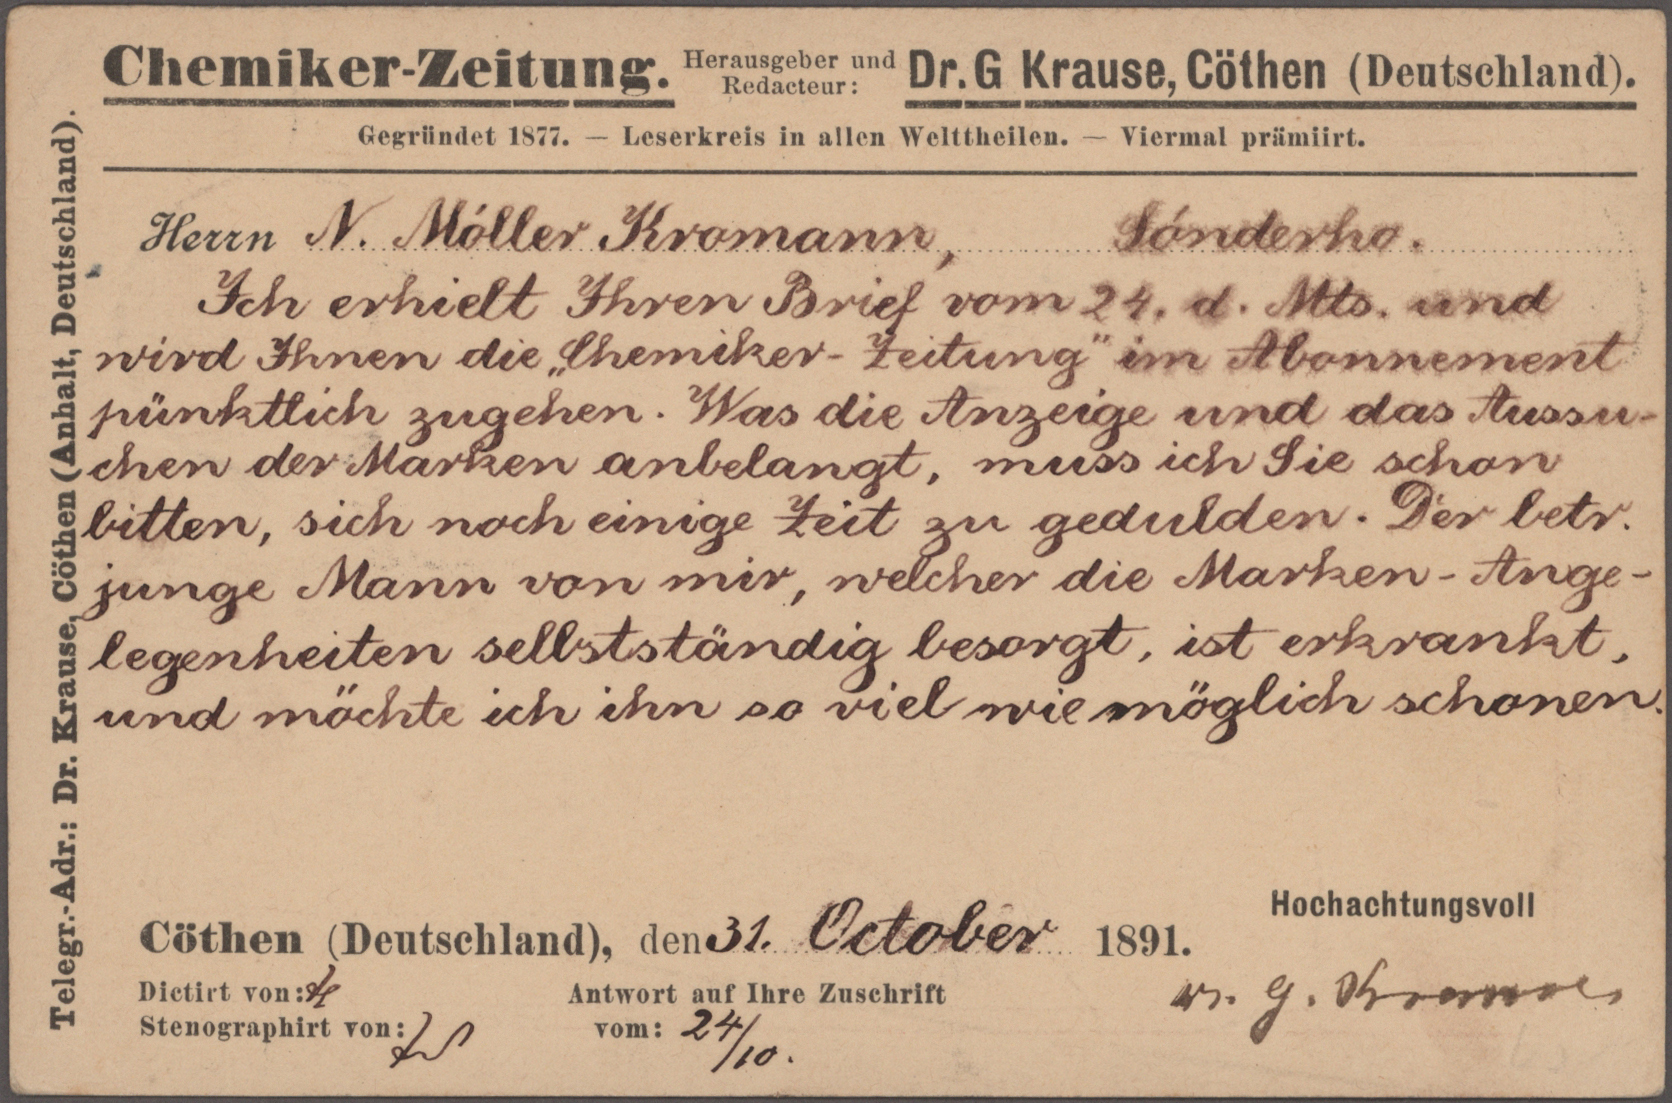 Chemiker-Zeitung. Herausgeber und Redacteur: Dr. G Krause, Cöthen (Deutschland).
Gegründet 1877. — Leserkreis in allen Welttheilen. — Viermal prämiirt.
Telegr.-Adr.: Dr. Krause, Cöthen (Anhalt, Deutschland).
Herrn N. Möller Kromann, Sónderho.
Ich erhielt Ihren Brief vom 24. d. Mts. und
wird Ihnen die „Chemiker-Zeitung" im Abonnement
pünktlich zugehen. Was die Anzeige und das Aussu-
chen der Marken anbelangt, muss ich Sie schon
bitten, sich noch einige Zeit zu gedulden. Der betr.
junge Mann von mir, welcher die Marken-Ange-
legenheiten selbstständig besorgt, ist erkrankt,
und möchte ich ihn so viel wie möglich schonen.
Hochachtungsvoll
Cöthen (Deutschland), den 31. October 1891.
Dictirt von: Antwort auf Ihre Zuschrift
Stenographirt von: vom: 24/10.
Dr. G. Krause